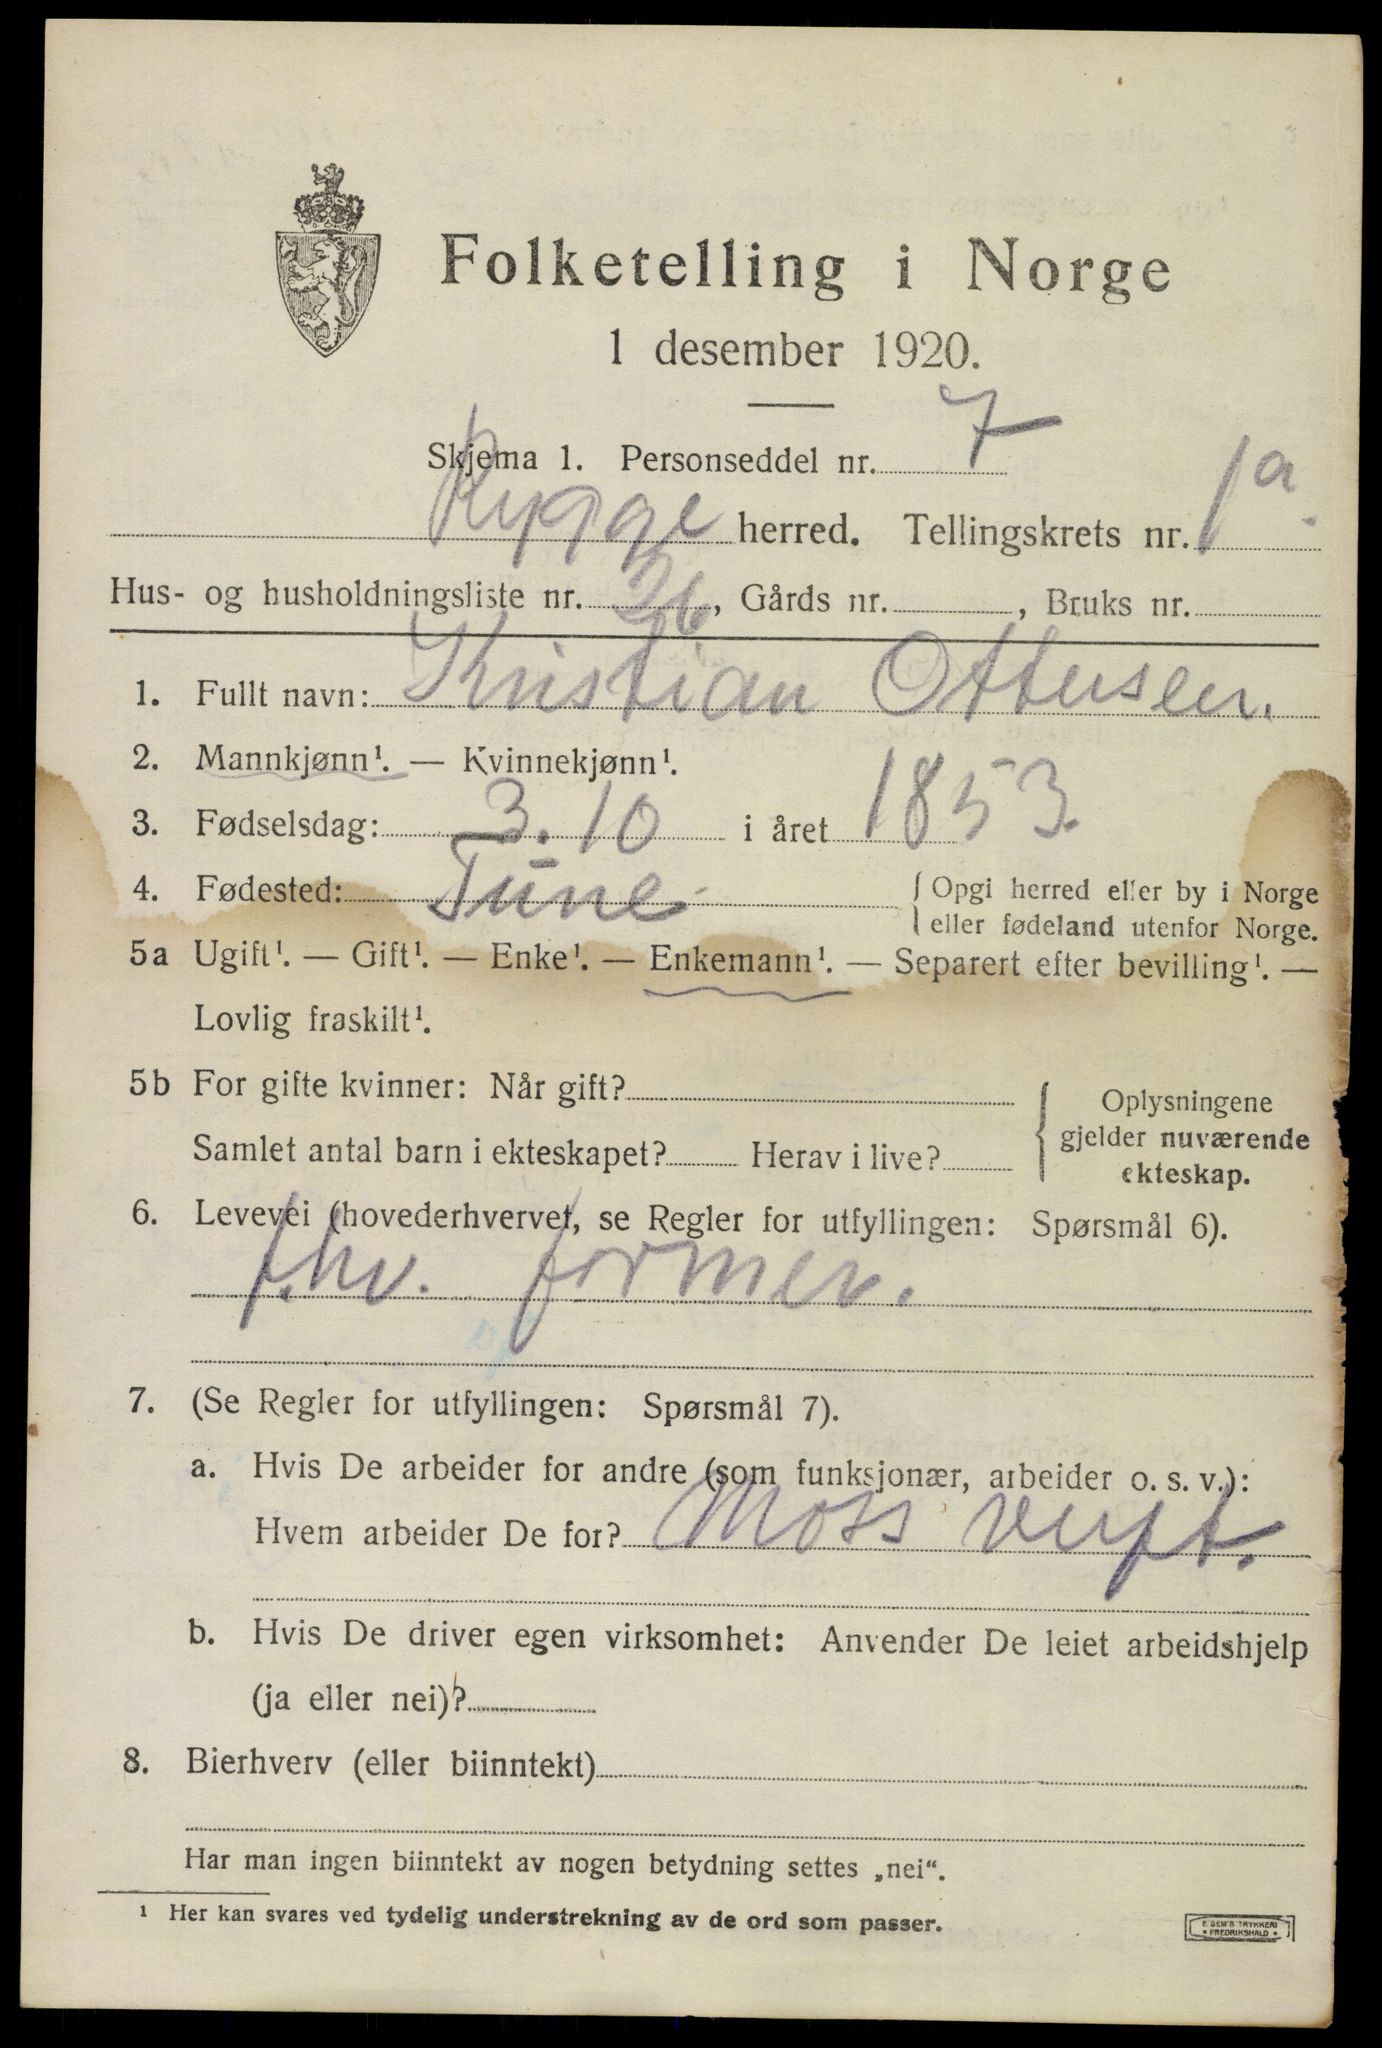 Folketelling i Norge
1 desember 1920.
Skjema 1. Personseddel nr. 7
Rygge herred. Tellingskrets nr. 1a.
Hus- og husholdningsliste nr. 26, Gårds nr. , Bruks nr.
1. Fullt navn: Kristian Ottersen.
2. Mannkjønn¹. — Kvinnekjønn¹.
3. Fødselsdag: 3. 10 i året 1853.
4. Fødested: Tune { Opgi herred eller by i Norge
eller fødeland utenfor Norge.
5a Ugift¹. — Gift¹. — Enke¹. — Enkemann¹. — Separert efter bevilling¹. —
Lovlig fraskilt¹.
5b For gifte kvinner: Når gift? { Oplysningene
gjelder nuværende
Samlet antal barn i ekteskapet? Herav i live?
ekteskap.
6. Levevei (hovederhvervet, se Regler for utfyllingen: Spørsmål 6).
f.hv. former.
7. (Se Regler for utfyllingen: Spørsmål 7).
a. Hvis De arbeider for andre (som funksjonær, arbeider o. s. v.):
Hvem arbeider De for? Moss verft.
b. Hvis De driver egen virksomhet: Anvender De leiet arbeidshjelp
(ja eller nei)?
8. Bierhverv (eller biinntekt)
Har man ingen biinntekt av nogen betydning settes „nei“.
¹ Her kan svares ved tydelig understrekning av de ord som passer.
E SEM'S TRYKKERI
• FREDRIKSHALD •